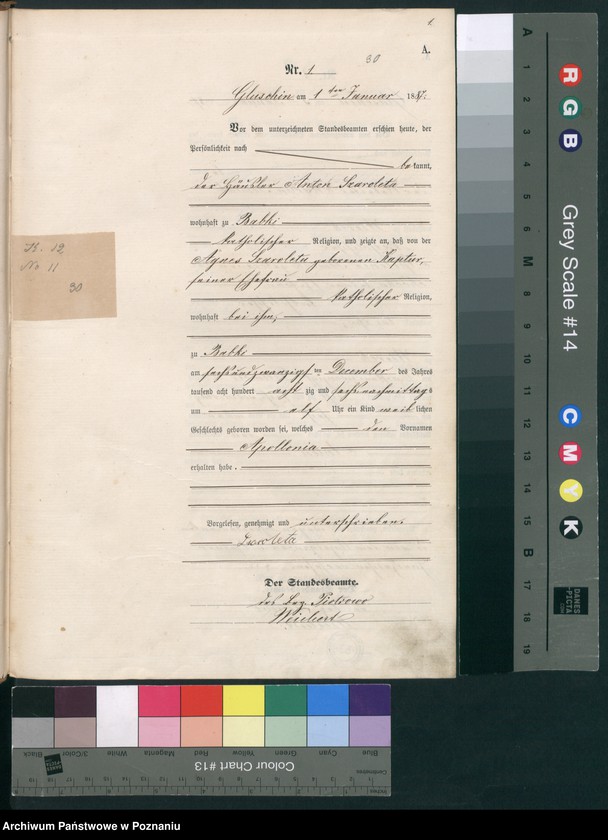 1.
A.
30
Nr. 1
Gluschin am 1 ten Januar 1887.
Vor dem unterzeichneten Standesbeamten erschien heute, der
Persönlichkeit nach
bekannt,
der Häusler Anton Szaroleta
wohnhaft zu Babki
katholischer Religion, und zeigte an, daß von der
Agnes Szaroleta geborenen Kaptur,
seiner Ehefrau
katholischer Religion,
wohnhaft bei ihm,
zu Babki
am sechsundzwanzigsten December des Jahres
tausend acht hundert acht zig und sechs nachmittags
um elf Uhr ein Kind weiblichen
Geschlechts geboren worden sei, welches den Vornamen
Apollonia
erhalten habe.
Vorgelesen, genehmigt und unterschrieben.
Szaroleta
Der Standesbeamte.
Weichert
No 11
30
A
1
2
3
4
5
6
M
8
9
10
11
12
13
14
15
B
17
18
19
R
G
B
Grey Scale #14
C
M
Y
K
DANES
PICTA
.COM
Black
3/Color
White
Magenta
Red
Yellow
Green
Cyan
Blue
Colour Chart #13
Centimetres
Inches
Archiwum Państwowe w Poznaniu